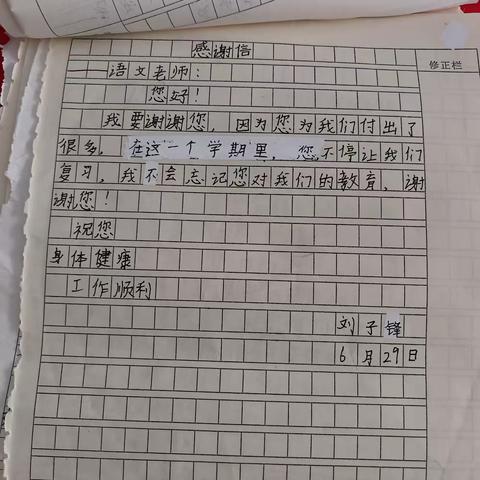 感谢信
修正栏
语文老师：
您好！
我要谢谢您，因为您为我们付出了
很多。在这一个学期里，您不停让我们
复习，我不会忘记您对我们的教育，谢
谢您！
祝您
身体健康
工作顺利
刘子锋
6月29日